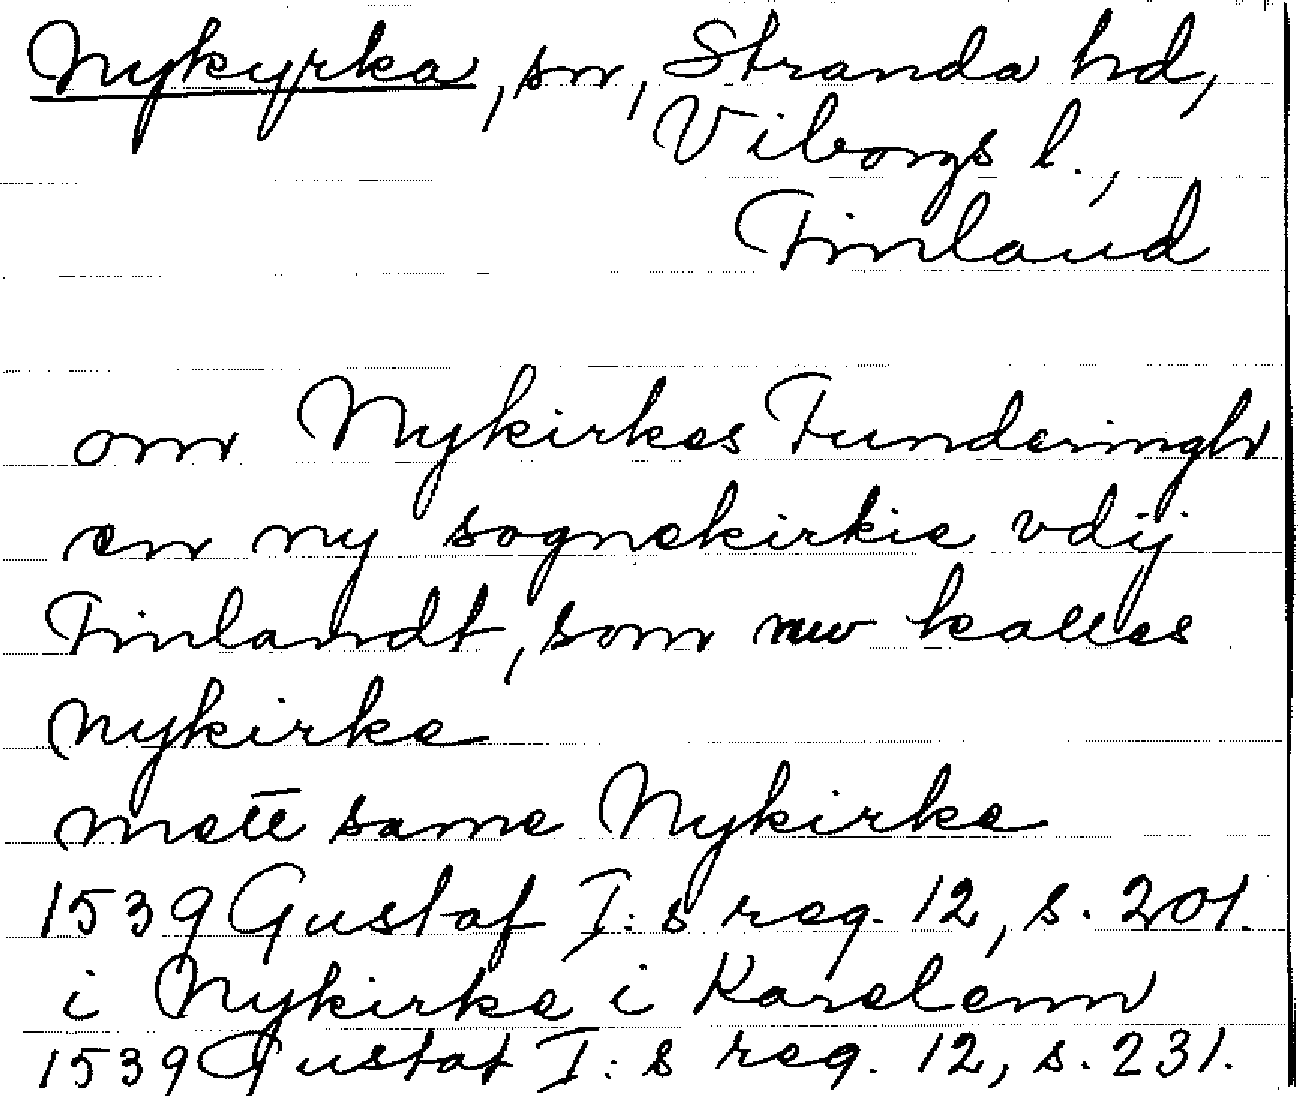 Nykyrka, sn, Stranda hd,
Viborgs l.,
Finland
om Nykirkes Funderingh
en ny sognekirkie vdij
Finlandt, som nw kalles
nykirke
mett same Nykirke
1539 Gustaf I:s reg. 12, s. 201.
i Nykirke i Karelenn
1539 Gustaf I:s reg. 12, s. 231.